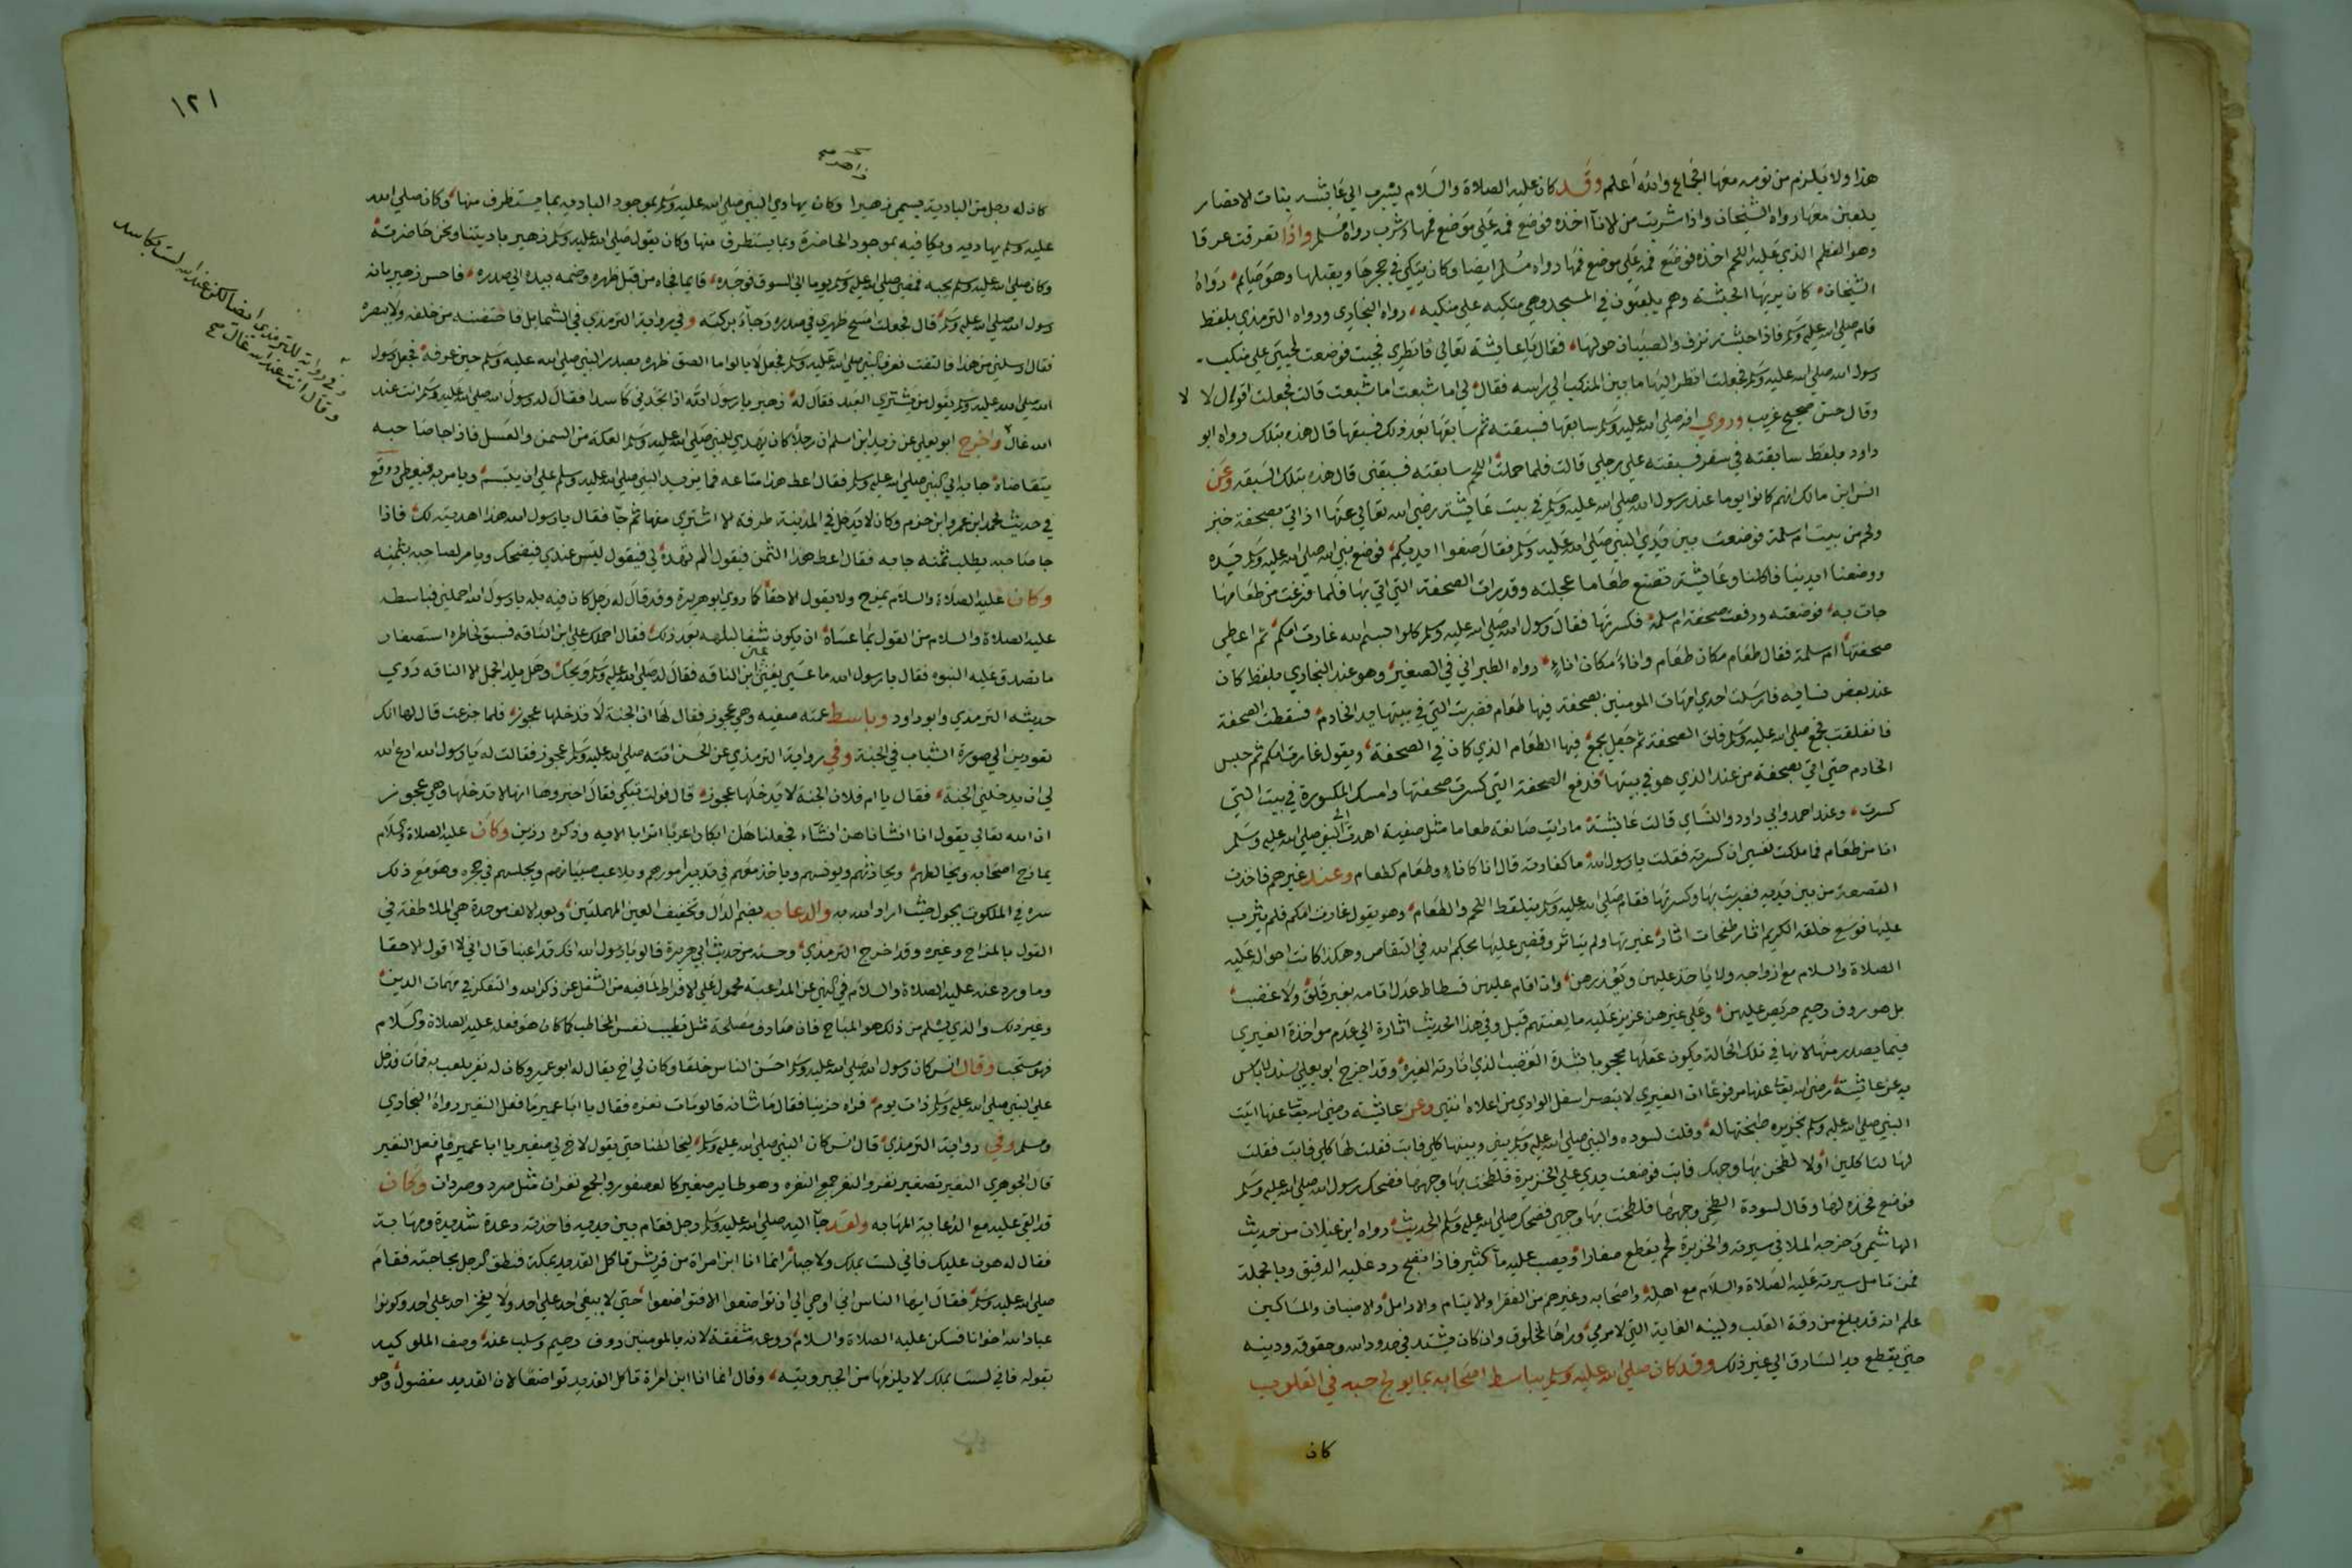 هذا ولا يلزم من نومه معها الجماع والله أعلم وقد كان عليه الصلاة والسلام يسرب الي عايشه بنات الانصار
يلعبن معها رواه الشيخان واذا شربت من الانآ اخذه فوضع فمه علي موضع فمها وشرب رواه مسلم واذا تعرقت عرقا
وهو العظم الذي عليه اللحم اخذه فوضع فمه علي موضع فمها رواه مسلم ايضا وكان يتكي في حجرها ويقبلها وهو صايم رواه
الشيخان كان يريها الحبشة وهم يلعبون في المسجد وهي متكيه علي منكبه رواه البخاري ورواه الترمذي بلفظ
قام صلي الله عليه وسلم فاذا حبشية تزفن والصبيان حولها فقال يا عايشة تعالي فانظري فجيت فوضعت لحيي علي منكب
رسول الله صلي الله عليه وسلم فجعلت انظر اليها ما بين المنكب الي راسه فقال لي اما شبعت اما شبعت قالت فجعلت اقول لا لا
وقال حسن صحيح غريب وروي انه صلي الله عليه وسلم سابقها فسبقته ثم سابقها بعد ذلك فسبقها قال هذه بتلك رواه ابو
داود بلفظ سابقته في سفر فسبقته علي رجلي قالت فلما حملت اللحم سابقته فسبقني قال هذه بتلك السبقه وعن
انس ابن مالك انهم كانوا يوما عند رسول الله صلي الله عليه وسلم في بيت عايشة رضي الله تعالي عنها اذ اتي بصحفة خبز
ولحم من بيت ام سلمة فوضعت بين يدي النبي صلي الله عليه وسلم فقال ضعوا ايديكم فوضع نبي الله صلي الله عليه وسلم يده
ووضعنا ايدينا فاكلنا وعايشة تصنع طعاما عجلته وقد رات الصحفة التي اتي بها فلما فرغت من طعامها
جات به فوضعته ورفعت صحفة ام سلمة فكسرتها فقال رسول الله صلي الله عليه وسلم كلوا بسم الله غارت امكم ثم اعطي
صحفتها ام سلمة فقال طعام مكان طعام واناء مكان اناء رواه الطبراني في الصغير وهو عند البخاري بلفظ كان
عند بعض نسايه فارسلت احدي امهات المومنين بصحفة فيها طعام فضربت التي في بيتها يد الخادم فسقطت الصحفة
فانفلقت فجمع صلي الله عليه وسلم فلق الصحفة ثم جعل يجمع فيها الطعام الذي كان في الصحفة ويقول غارت امكم ثم حبس
الخادم حتي اتي بصحفة من عند الذي هو في بيتها فدفع الصحفة التي كسرت صحفتها وامسك المكسورة في بيت التي
كسرت وعند احمد وابي داود والنساي قالت عايشة ما رايت صانعة طعاما مثل صفية اهدت الي النبي صلي الله عليه وسلم
انا من طعام فما ملكت نفسي ان كسرته فقلت يا رسول الله ما كفارته قال انا كاناء وطعام كطعام وعند غيرهم فاخذت
القصعة من بين يديه فضربت بها وكسرتها فقام صلي الله عليه وسلم يلتقط اللحم والطعام وهو يقول غارت امكم فلم يثرب
عليها فوسع خلقه الكريم اثار طفحات اثار غيرتها ولم يتاثر وقضي عليها بحكم الله في التقاص وهكذا كانت احواله عليه
الصلاة والسلام مع ازواجه ولا ياخذ عليهن ويعذرهن وان اقام عليهن قسطاط عدل اقامه بغير قلق ولا غضب
بل هو روف رحيم حريص عليهن وعلي غيرهن عزيز عليه ما يعنتهم قيل وفي هذا الحديث اشارة الي عدم مواخذة الغيري
فيما يصدر منها لانها في تلك الحالة يكون عقلها محجوبا بشدة الغضب الذي اثارته الغيرة وقد اخرج ابو يعلي بسند لا باس
به عن عايشة رضي الله تعا عنها مرفوعا ان الغيري لا تبصر اسفل الوادي من اعلاه انتهي وعن عايشة رضي الله تعا عنها اتيت
النبي صلي الله عليه وسلم بخزيره طبختها له وقلت لسوده والنبي صلي الله عليه وسلم بيني وبينها كلي فابت فقلت لها كلي فابت فقلت
لها لتاكلين او لا لطخن بها وجهك فابت فوضعت يدي علي الخزيرة فلطخت بها وجهها فضحك رسول الله صلي الله عليه وسلم
فوضع فخذه لها وقال لسودة الطخي وجهها فلطخت بها وجهي فضحك صلي الله عليه وسلم الحديث رواه ابن غيلان من حديث
الهاشمي وخرجه الملا في سيرته والخزيرة لحم يقطع صغارا ويصب عليه مآ كثير فاذا نضج ذر عليه الدقيق وبالجملة
فمن تامل سيرته عليه الصلاة والسلام مع اهله واصحابه وغيرهم من الفقرا والايتام والارامل والاضياف والمساكين
علم انه قد بلغ من رقة القلب ولينه الغاية التي لا مرمي وراها لمخلوق وان كان يشتد في حدود الله وحقوقه ودينه
حتي يقطع يد السارق الي غير ذلك وقد كان صلي الله عليه وسلم يباسط اصحابه بما يولج حبه في القلوب
كان
١٢١
زاهر صح
كان له رجل من البادية يسمي زهيرا وكان يهادي النبي صلي الله عليه وسلم بموجود البادية بما يستظرف منها وكان صلي الله
عليه وسلم يهاديه ويكافيه بموجود الحاضرة وبما يستظرف منها وكان يقول صلي الله عليه وسلم زهير باديتنا ونحن حاضرته
وكان صلي الله عليه وسلم يحبه فمضي صلي الله عليه وسلم يوما الي السوق فوجده قايما فجاه من قبل ظهره وضمه بيده الي صدره فاحس زهير بانه
رسول الله صلي الله عليه وسلم قال فجعلت امسح ظهري في صدره رجاء بركته وفي رواية الترمذي في الشمايل فاحتضنه من خلفه ولا يبصره
فقال ارسلني من هذا فالتفت فعرف النبي صلي الله عليه وسلم فجعل لا يالوا ما الصق ظهره بصدر النبي صلي الله عليه وسلم حين عرفه فجعل رسول
الله صلي الله عليه وسلم يقول من يشتري العبد فقال له زهير يا رسول الله اذا تجدني كاسدا فقال له رسول الله صلي الله عليه وسلم انت عند
الله غال واخرج ابو يعلي عن زيد ابن اسلم ان رجلا كان يهدي للنبي صلي الله عليه وسلم العكة من السمن والعسل فاذا جا صاحبه
يتقاضاه جا به الي النبي صلي الله عليه وسلم فقال اعط هذا متاعه فما يزيد النبي صلي الله عليه وسلم علي ان يتبسم ويامر به فيعطي ووقع
في حديث محمد ابن عمرو ابن حزم وكان لا يدخل في المدينة طرفة الا اشتري منها ثم جآ فقال يا رسول الله هذا اهديته لك فاذا
جا صاحبه يطلب ثمنه جا به فقال اعط هذا الثمن فيقول الم تهده لي فيقول ليس عندي فيضحك ويامر لصاحبه بثمنه
وكان عليه الصلاة والسلام يمزح ولا يقول الا حقا كما روي ابو هريرة وقد قال له رجل كان فيه بله يا رسول الله احملني فباسطه
عليه الصلاة والسلام من القول بما عساه ان يكون شفا لبلهه بعد ذلك فقال احملك علي ابن الناقه فسبق لخاطره استصغار
ما تصدق عليه البنوه فقال يا رسول الله ما عسي يغني عني ابن الناقه فقال له صلي الله عليه وسلم ويحك وهل يلد الجمل الا الناقه روي
حديثه الترمذي وابو داود وباسط عمته صفيه وهي عجوز فقال لها ان الجنة لا تدخلها عجوز فلما جزعت قال لها انك
تعودين الي صورة الشباب في الجنة وفي رواية الترمذي عن الحسن اتته صلي الله عليه وسلم عجوز فقالت له يا رسول الله ادع الله
لي ان يدخلني الجنة فقال يا ام فلان الجنة لا تدخلها عجوز قال فولت تبكي فقال اخبروها انها لا تدخلها وهي عجوز
ان الله تعالي يقول انا انشاناهن انشآء فجعلناهن ابكارا عربا اترابا الايه وذكره رزين وكان عليه الصلاة والسلام
يمازح اصحابه ويخالطهم ويحادثهم ويونسهم وياخذ معهم في تدبير امورهم ويلاعب صبيانهم ويجلسهم في حجره وهو مع ذلك
سره في الملكوت يجول حيث اراد الله به والدعابه بضم الدال وتخفيف العين المهملتين وبعد الالف موحدة هي الملاطفة في
القول بالمزاح وغيره وقد اخرج الترمذي وحسنه من حديث ابي هريرة قالوا يا رسول الله انك تداعبنا قال اني لا اقول الا حقا
وما ورد عنه عليه الصلاة والسلام في النهي عن المداعبة محمول علي الافراط لما فيه من الشغل عن ذكر الله والتفكر في مهمات الدين
وغير ذلك والذي يسلم من ذلك هو المباح فان صادف مصلحة مثل تطييب نفس المخاطب كما كان هو فعله عليه الصلاة والسلام
فهو مستحب وقال انس كان رسول الله صلي الله عليه وسلم احسن الناس خلقا وكان لي اخ يقال له ابو عمير وكان له نغر يلعب به فمات فدخل
علي النبي صلي الله عليه وسلم ذات يوم فراه حزينا فقال ما شانه قالوا مات نغره فقال يا ابا عمير ما فعل النغير رواه البخاري
ومسلم وفي رواية الترمذي قال انس كان النبي صلي الله عليه وسلم ليخالطنا حتي يقول لاخ لي صغير يا ابا عمير ما فعل النغير
قال الجوهري النغير تصغير نغر والنغر جمع النغره وهو طاير صغير كالعصفور والجمع نغران مثل صرد وصردان وكان
قد القي عليه مع الدعابة المهابه ولقد جآ اليه صلي الله عليه وسلم رجل فقام بين يديه فاخذته رعدة شديدة ومهابة
فقال له هون عليك فاني لست بملك ولا جبار انما انا ابن امراة من قريش تاكل القديد بمكة فنطق الرجل بحاجته فقام
صلي الله عليه وسلم فقال ايها الناس اني اوحي الي ان تواضعوا الا فتواضعوا حتي لا يبغي احد علي احد ولا يفخر احد علي احد وكونوا
عباد الله اخوانا فسكن عليه الصلاة والسلام روعه شفقة لانه بالمومنين روف رحيم وسلب عنه وصف الملوكيه
بقوله فاني لست بملك لا يلزمها من الجبروتيه وقال انما انا ابن امراة تاكل القديد تواضعا لان القديد مفضول وهو
وفي رواية للترمذي ايضا لكن عند الله لست بكاسد
وقال انت عند الله غال صح